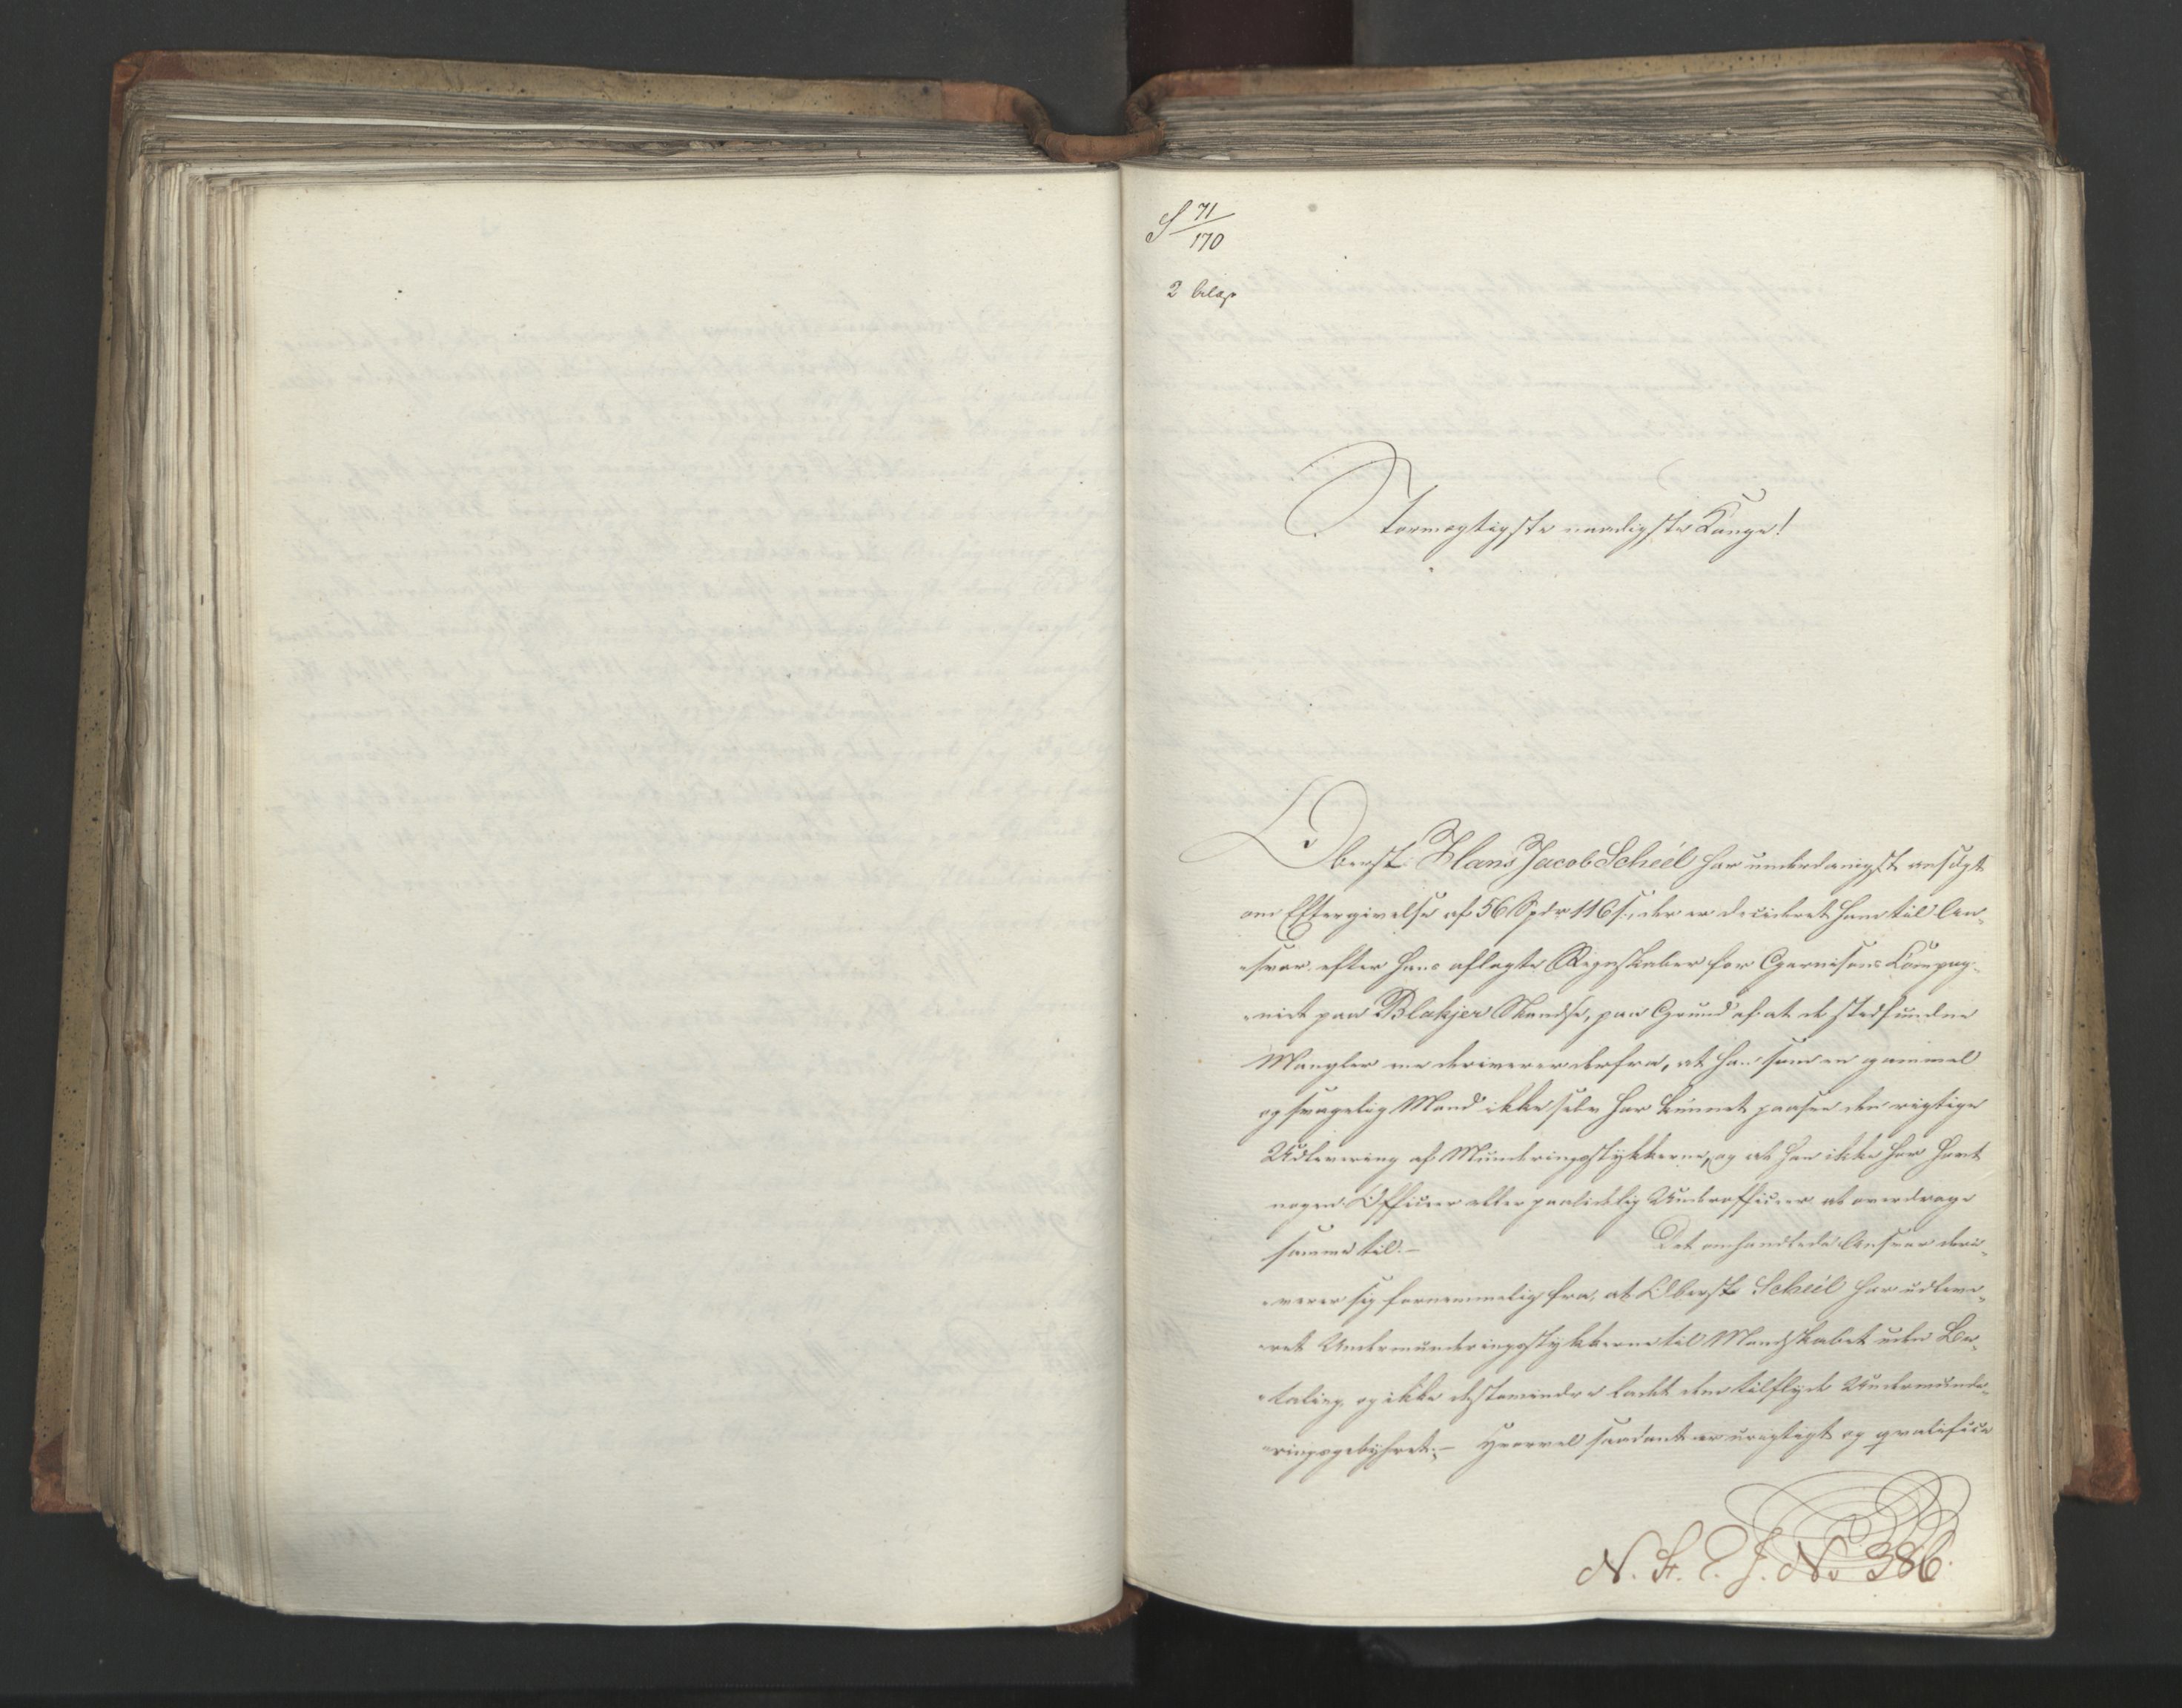 S 71/170
2 bilag
Stormægtigste naadigste Konge!
Oberst Hans Jacob Scheel har underdanigst ansøgt
om Eftergivelse af 56 Spdr 116 s., der er decideret ham til An-
svar efter hans aflagte Regnskaber for Garnisons Compag-
niet paa Blakjer Skandse, paa Grund af at de stedfundne
Mangler me deriverer derfra, at han som en gammel
og svagelig Mand ikke selv har kunnet paasee den rigtige
Udlevering af Munderingsstykkerne, og at han ikke har havt
nogen Officier eller paalidelig Underofficier at overdrage
samme til.— Det omhandlede Ansvar deri-
verer sig fornemmelig fra, at Oberst Scheel har udleve-
ret Undermunderingsstykkerne til Mandskabet uden Be-
taling, og ikke destomindre ladet dem tilflyde Undermunde-
ringsgebyhret.— Hvorvel saadant er urigtigt og qvalifice
N. F. C. J. No 386.